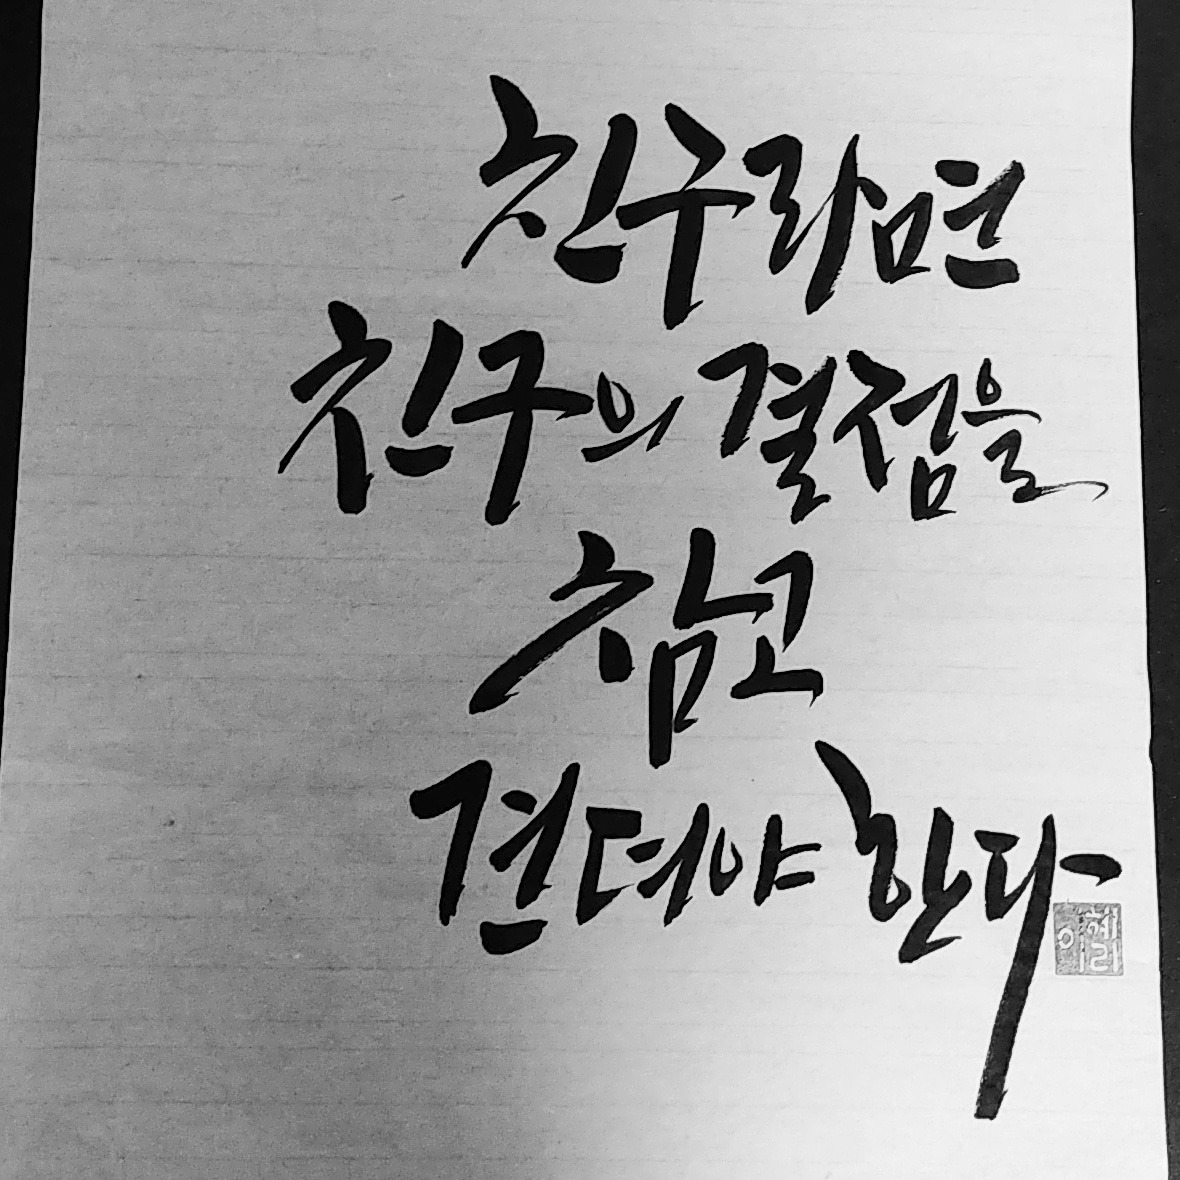 친구라면
친구의 결점을
참고
견뎌야 한다